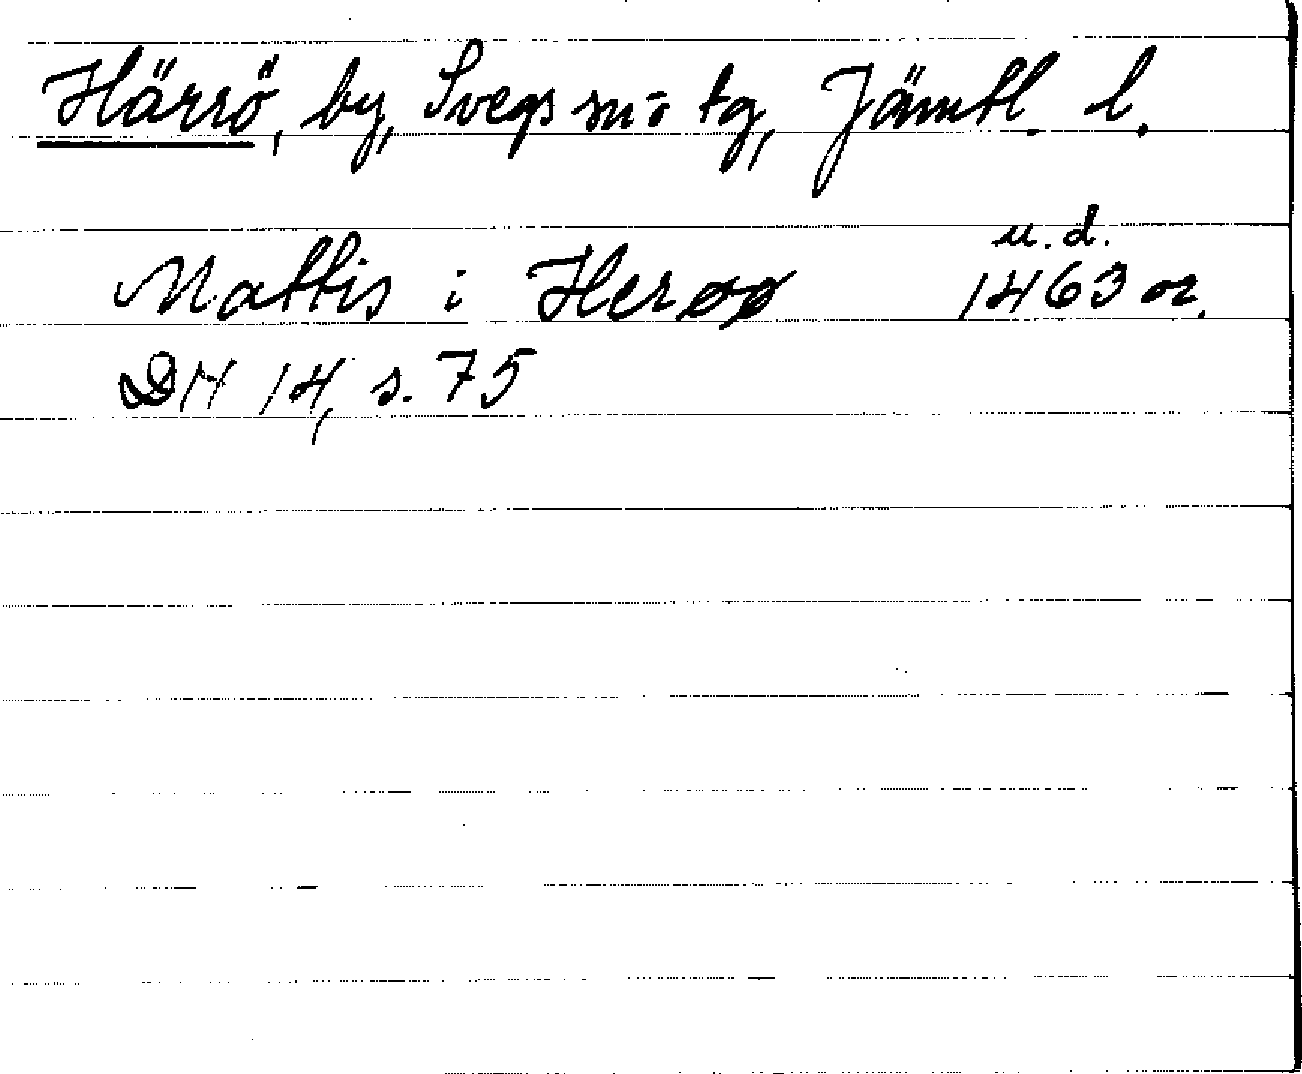 Härrö, by, Svegs sn o tg, Jämtl. l.
u.d.
Mattis i Herøø 1463 or.
DN 14, s. 75